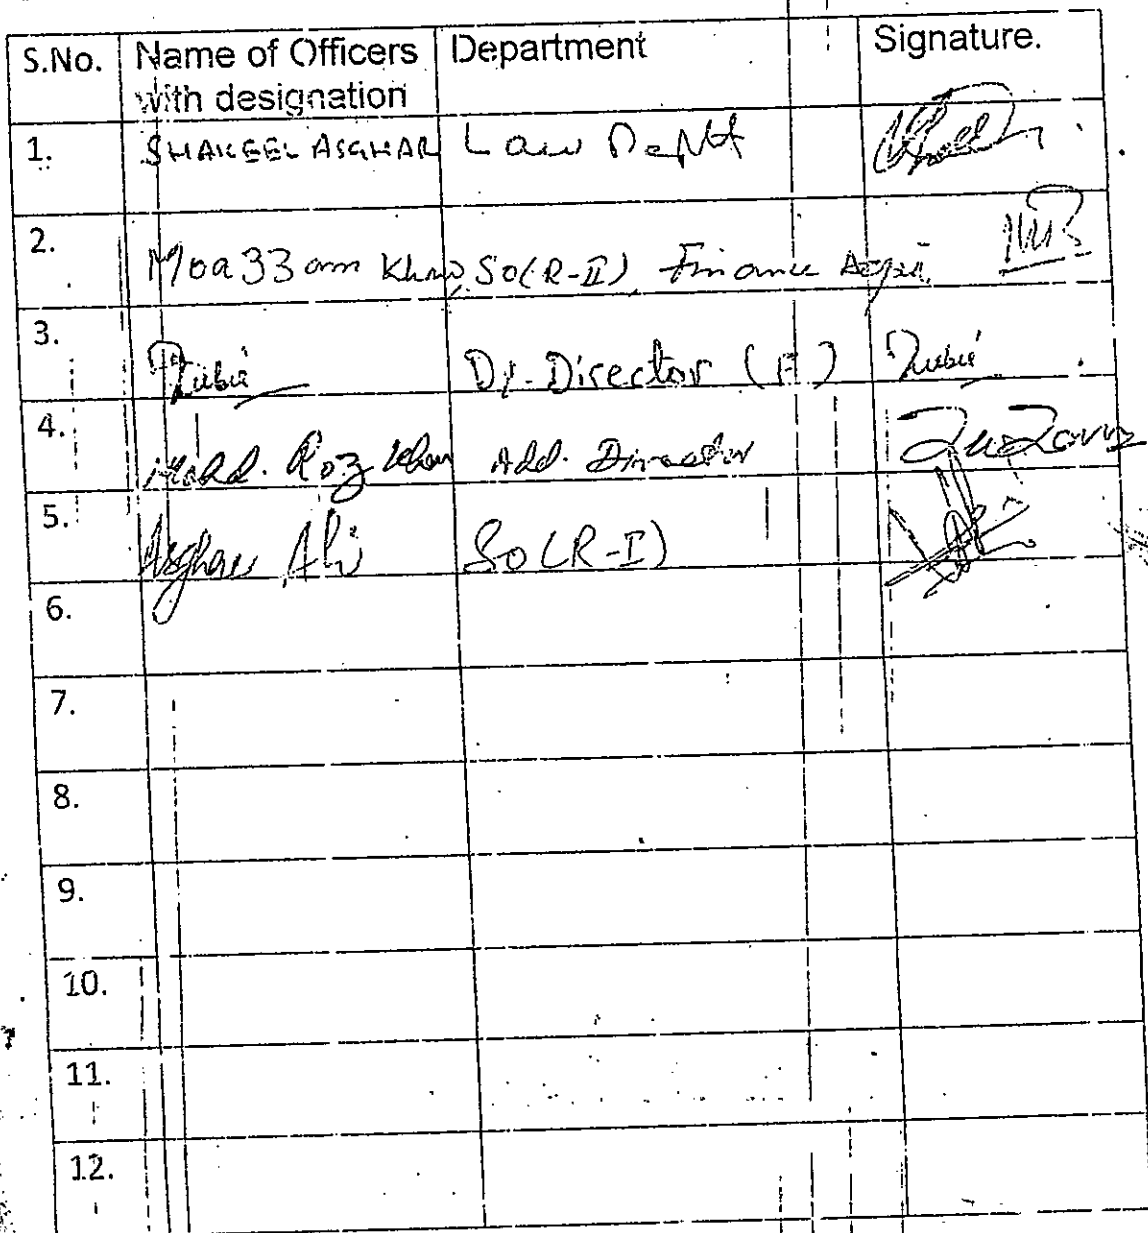 S.No. Name of Officers with designation Department Signature.
1. SHAKEEL ASGHAR Law Deptt
2. Moazzam Khan, SO(R-II) Finance Deptt.
3. Dy. Director (F)
4. Mohd. Roz Khan Add. Director
5. Asghar Ali SO(R-I)
6.
7.
8.
9.
10.
11.
12.